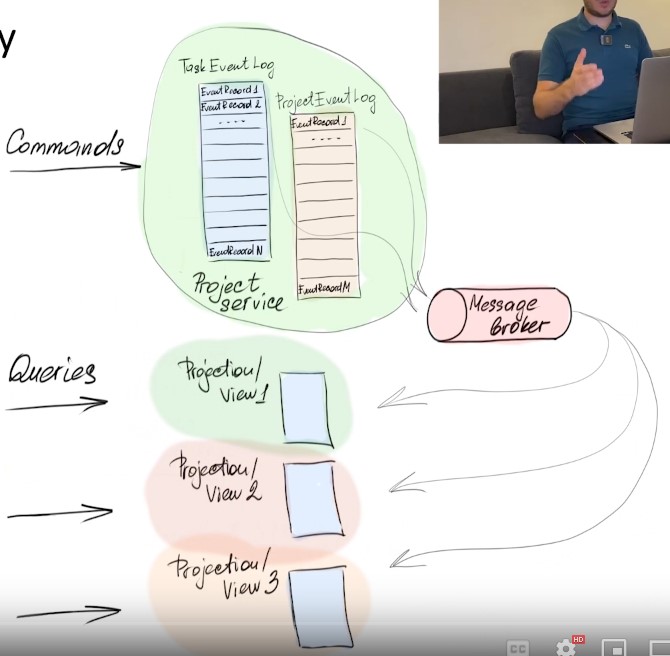 y
Task Event Log
EventRecord 1
EventRecord 2
----
EventRecord N
Project Event Log
EventRecord 1
----
EventRecord M
Project
service
Commands
Message
broker
Queries
Projection/
View 1
Projection/
View 2
Projection/
View 3
CC
HD